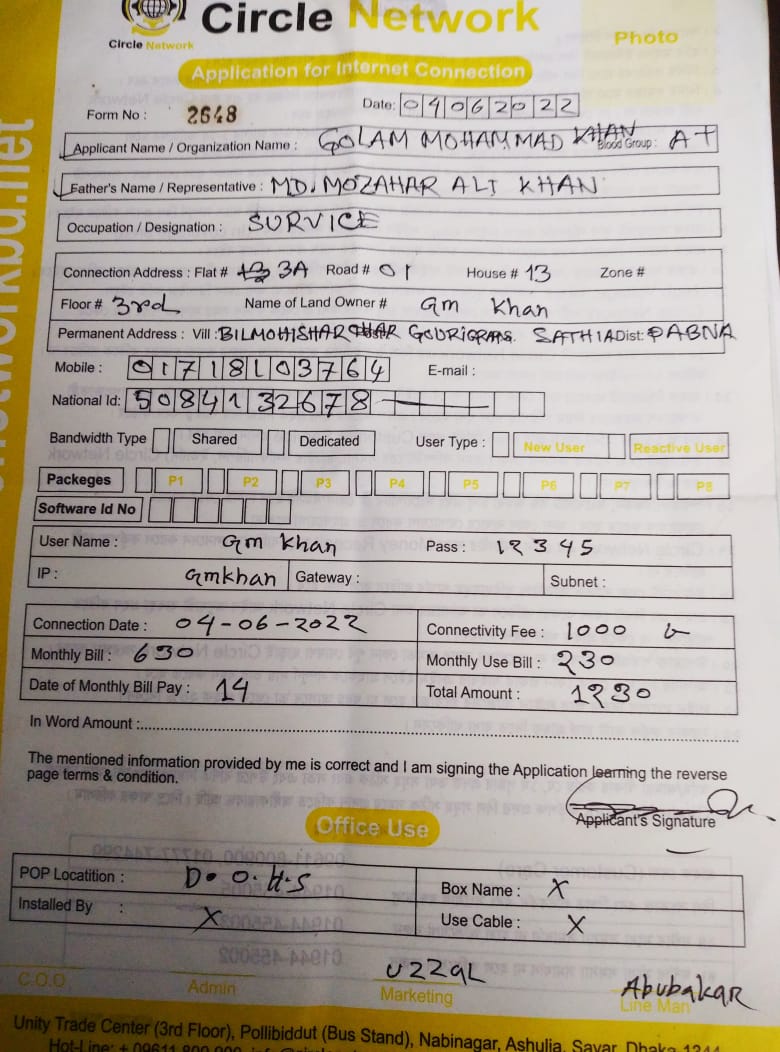 Circle Network
Circle Network
Photo
Application for Internet Connection
Form No : 2648
Date: 04062022
Applicant Name / Organization Name : GOLAM MOHAMMAD KHAN Blood Group : A+
Father's Name / Representative : MD. MOZAHAR ALI KHAN
Occupation / Designation : SURVICE
Connection Address : Flat # 3A Road # 01 House # 13 Zone #
Floor # 3rd Name of Land Owner # Gm Khan
Permanent Address : Vill : BILMOHISHAR CHAR SATHIA Dist: PABNA
Mobile : 01718103764 E-mail :
National Id: 5084132678
Bandwidth Type Shared Dedicated User Type : New User Reactive User
Packeges P1 P2 P3 P4 P5 P6 P7 P8
Software Id No
User Name : Gm Khan Pass : 12345
IP : Gmkhan Gateway : Subnet :
Connection Date : 04-06-2022 Connectivity Fee : 1000
Monthly Bill : 630 Monthly Use Bill : 230
Date of Monthly Bill Pay : 14 Total Amount : 1230
In Word Amount :
The mentioned information provided by me is correct and I am signing the Application learning the reverse
page terms & condition.
Applicant's Signature
Office Use
POP Locatition : D.O.H.S Box Name : X
Installed By : X Use Cable : X
C.O.O Admin UZZAL Marketing Abubakar Line Man
Unity Trade Center (3rd Floor), Pollibiddut (Bus Stand), Nabinagar, Ashulia, Savar, Dhaka-1344